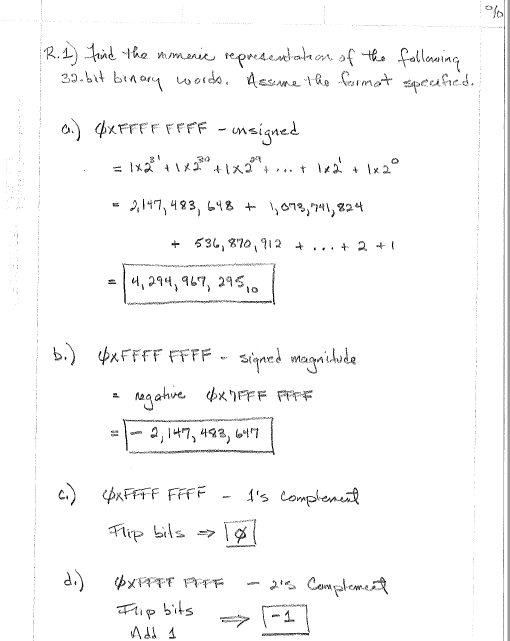 %
R.1) Find the numeric representation of the following
32-bit binary words. Assume the format specified.
a.) 0xFFFF FFFF - unsigned
= 1x2^31 + 1x2^30 + 1x2^29 + ... + 1x2^1 + 1x2^0
= 2,147,483,648 + 1,073,741,824
+ 536,870,912 + ... + 2 + 1
= 4,294,967,295₁₀
b.) 0xFFFF FFFF - signed magnitude
= negative 0x7FFF FFFF
= - 2,147,483,647
c.) 0xFFFF FFFF - 1's Complement
Flip bits ⇒ 0
d.) 0xFFFF FFFF - 2's Complement
Flip bits
Add 1 ⇒ -1